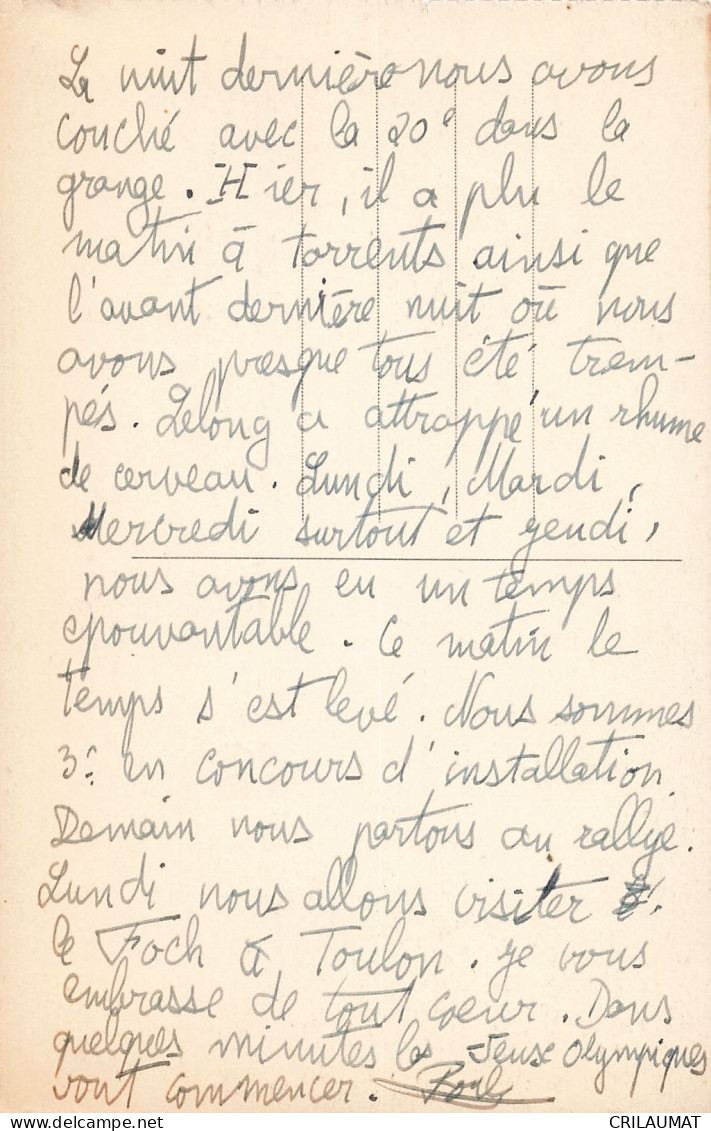 La nuit dernière nous avons
couché avec la 20e dans la
grange. Hier, il a plu le
matin à torrents ainsi que
l'avant dernière nuit où nous
avons presque tous été trem-
pés. Lelong a attrappé un rhume
de cerveau. Lundi, Mardi,
Mercredi surtout et jeudi,
nous avons eu un temps
epouvantable. Ce matin le
temps s'est levé. Nous sommes
3e en concours d'installation
Demain nous partons au rallye.
Lundi nous allons visiter
le Foch à Toulon. je vous
embrasse de tout coeur. Dans
quelques minutes les Jeux Olympiques
vont commencer.
CRILAUMAT